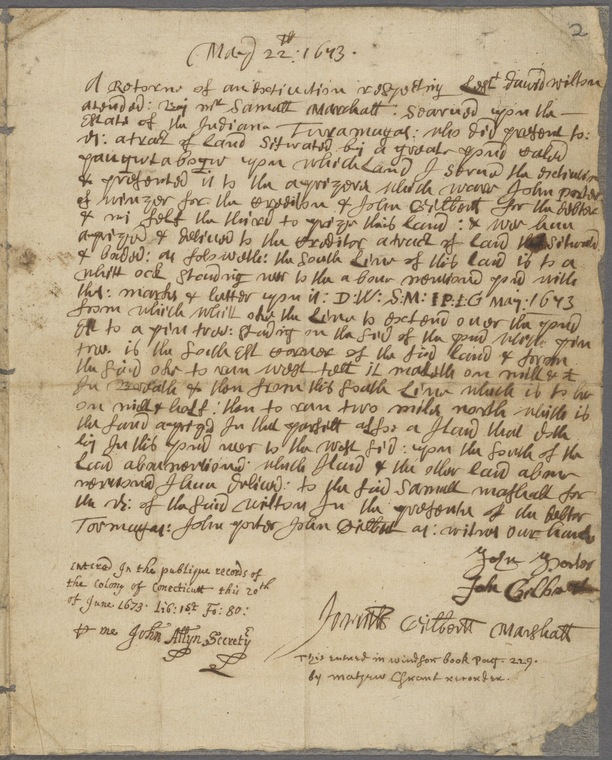 2
(May 22th: 1673.
A Retorne of an exicution respecting Left David wilton
atended: By mr Samull Marshall: Searued upon the
Estate of the Indian Torramagas: who did present to:
it: a tract of land Sittuated by a greate pond caled
upon which Land I serued the exicution
& presented it to the aprizers which ware John porter
of winzer for the creditor & John Gilbert for the debtor
& mi self the third to prize this land: & wee haue
aprized & deliued to the creditor a tract of Land Sittuated
& boded: as folowith: the South Line of this land is to a
whitt ock Standing ner to the aboue mentiond pond with
thes: marks & letter upon it: D:W: S:M: I P: I G May: 1673
from which whitt oke the Line to extend over the pond
Est to a pin tree: Stading on the sid of the pond which pin
tree is the South Est corner of the sid land & from
the said oke to run west tell it maketh on mill & ½
In Breadth & then from this South Line which is to be
on mill & half: then to ran two miles north which is
the land aprized In that parsell allso a Iland that doth
ly In this pond ner to the West sid: upon the South of the
Land abou mentioned which Iland & the other land aboue
mentiond I haue deliued: to the said Samull mashall for
the of the said wilton In the presents of the debtor
Toramagas: John porter John Gilbert as: witnes our hands
John Porter
John Gilbert
Entered In the publique records of
the Colony of Conecticutt this 20th
of June 1673. Lib: 1st Fo: 80:
me John Allyn Secrety
Gilbertt Marshall
This entred in windsor book pag. 229.
by mathew Grant recorder.